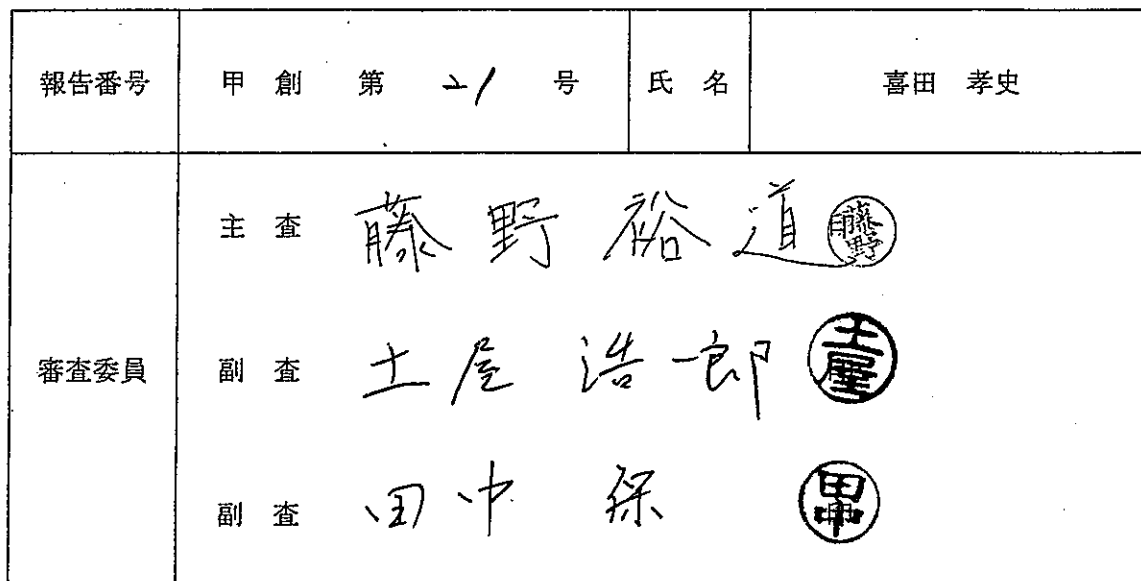 報告番号 甲 創 第 21 号 氏 名 喜田 孝史
主 査 藤野裕道 藤野
審査委員 副 査 土屋 浩一郎 土屋
副 査 田中 保 田中